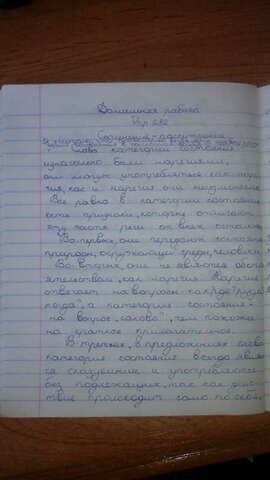 Домашняя работа
Упр 282
Сочинение-рассуждение
Слова категории состояния
изначально были наречиями,
они могут употребляться как наре
чия, как и наречия они неизменяемы.
Все равно в категории состояния
есть признаки, которые отличают
эту часть речи от всех остальных
Во-первых, они передают состояние
природы, окружающей среды, человека.
Во вторых, они не являются обсто
ятельством, как наречия. Наречие
отвечает на вопросы как, где куда
когда", а категория состояния -
на вопрос „каково", чем похожи
на краткое прилагательное.
В-третьих, в предложениях слова
категории состояние всегда являют
ся сказуемыми и употребляются
без подлежащих, так как дейс
твие происходит само по себе.